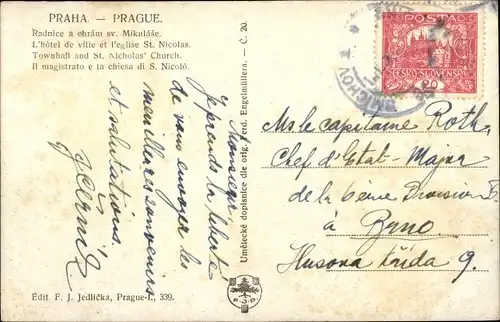 PRAHA. — PRAGUE.
Radnice a chrám sv. Mikuláše.
L'hôtel de ville et l'eglise St. Nicolas.
Townhall and St. Nicholas' Church.
Il magistrato e la chiesa di S. Nicolò.
Monsieur,
Je prends la liberté
de vous envoyer les
meilleures souvenirs
et salutations.
Umělecké dopisnice dle orig. Ferd. Engelmüllera. — Č. 20.
POSTA
ČESKO-SLOVENSKÁ
20
Ms le capitaine Roth,
Chef d'Etat-Major
de la 6ème Division
à Brno
Husova třída 9.
F.J.P.
Édit. F. J. Jedlička, Prague-I., 339.